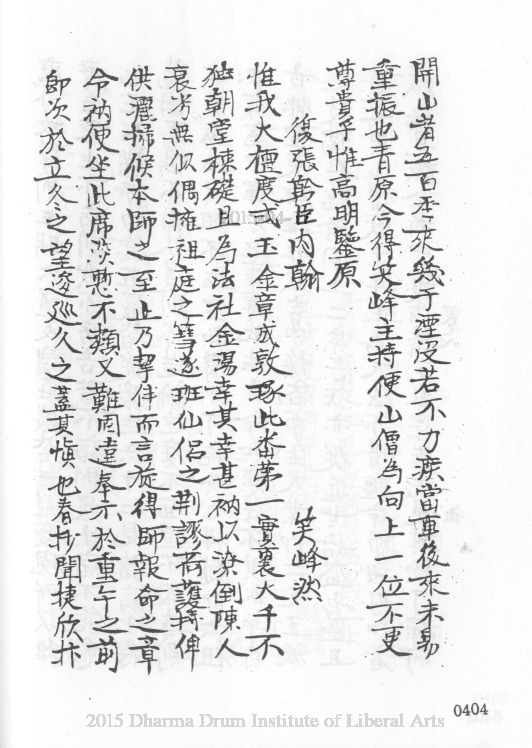 開山者五百季來幾于湮沒若不力疾當軍後來未易
重振也青原今得笑峰主持便山僧為向上一位不更
尊貴乎惟高明鑒原
復張翰臣內翰 笑峰然
惟我大檀度式玉金章成敦琢此番第一實襄大千不
獨朝堂棟礎且為法社金湯幸甚幸甚衲以潦倒陳人
衰朽無似偶擁祖庭之篲遂班仙侶之荊謬荷護持俾
供灑掃候本師之至止乃挈伴而言旋得師報命之章
令衲便坐此席茨慙不類又難固違奉示於重午之前
即次於立冬之望逡巡久之蓋其慎也春抄聞捷欣忭
0404
2015 Dharma Drum Institute of Liberal Arts